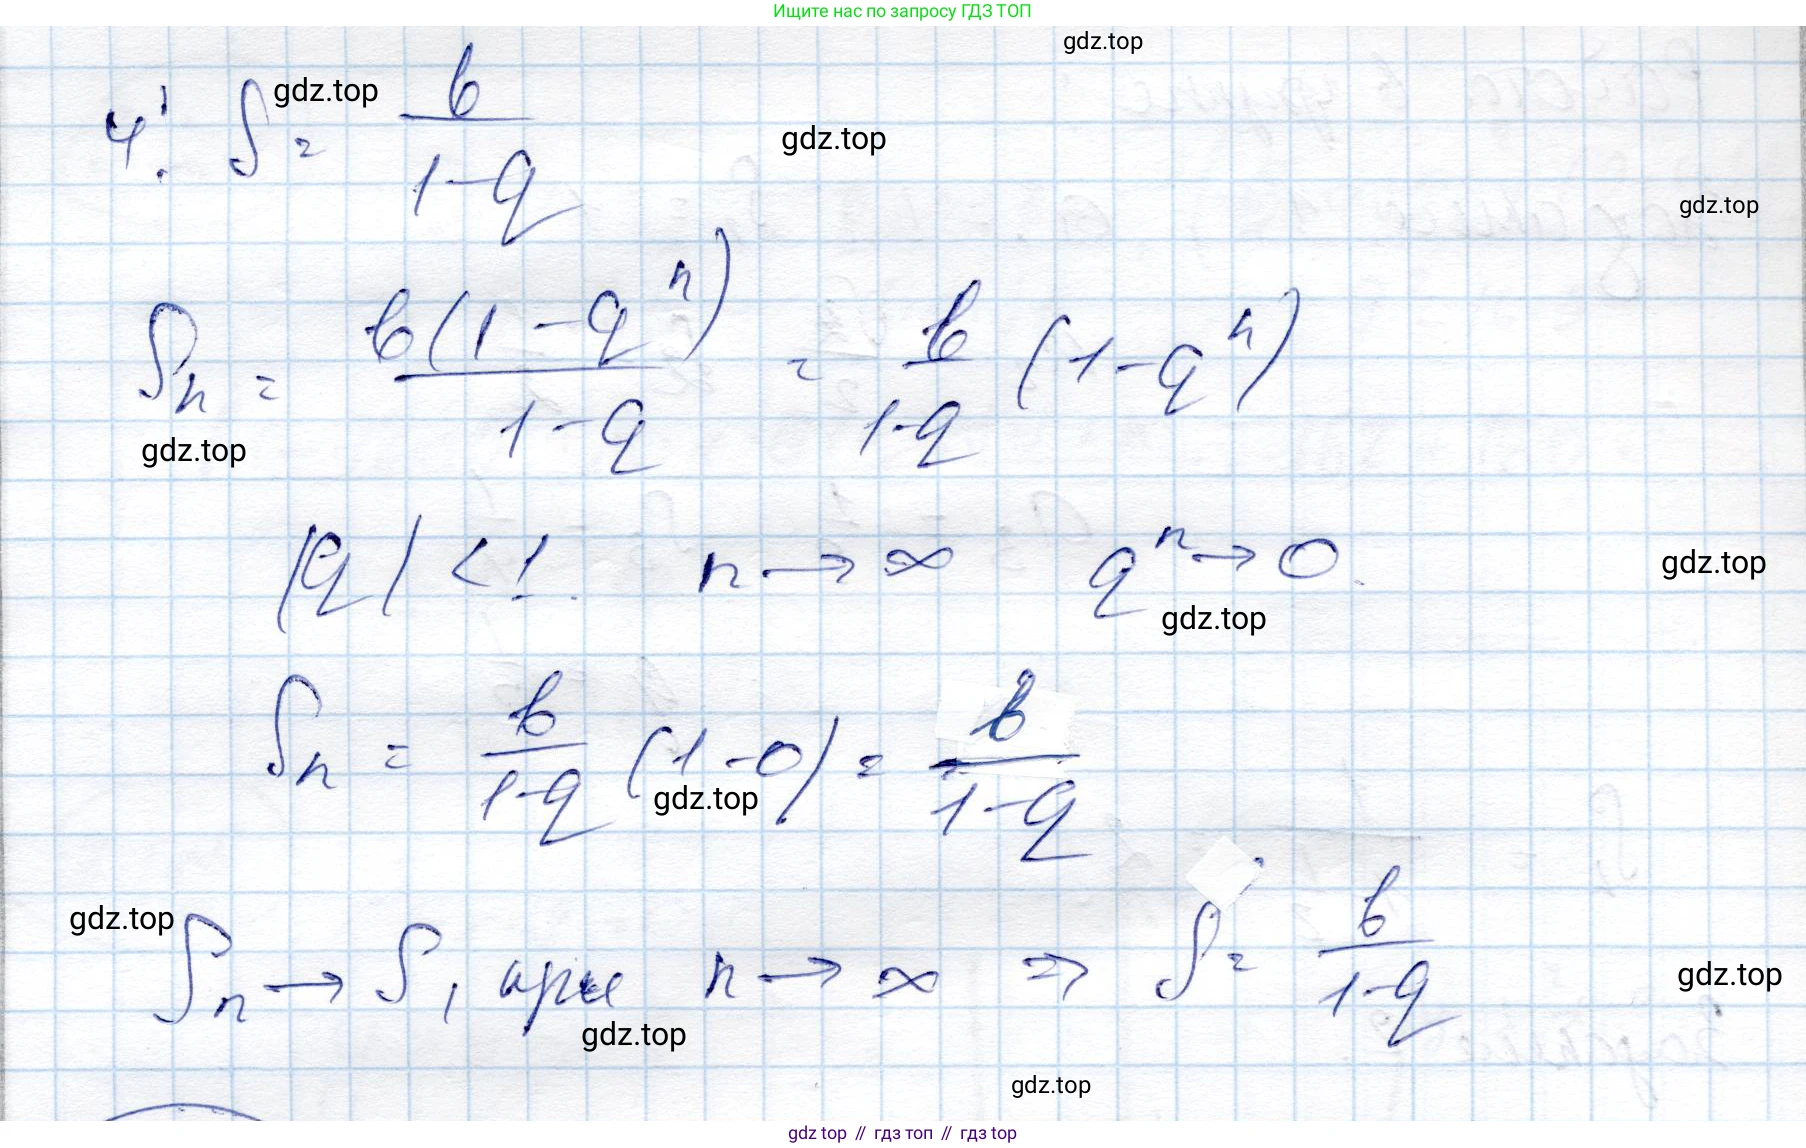 Ищите нас по запросу ГДЗ ТОП
gdz.top
4. S = b / (1-q)
gdz.top
gdz.top
gdz.top
Sn = b(1-q^n) / (1-q) = b / (1-q) (1-q^n)
gdz.top
|q| < 1. n → ∞ q^n → 0.
gdz.top
gdz.top
Sn = b / (1-q) (1-0) = b / (1-q)
gdz.top
gdz.top
Sn → S, при n → ∞ ⇒ S = b / (1-q)
gdz.top
gdz.top
gdz.top
gdz top // гдз топ // gdz top